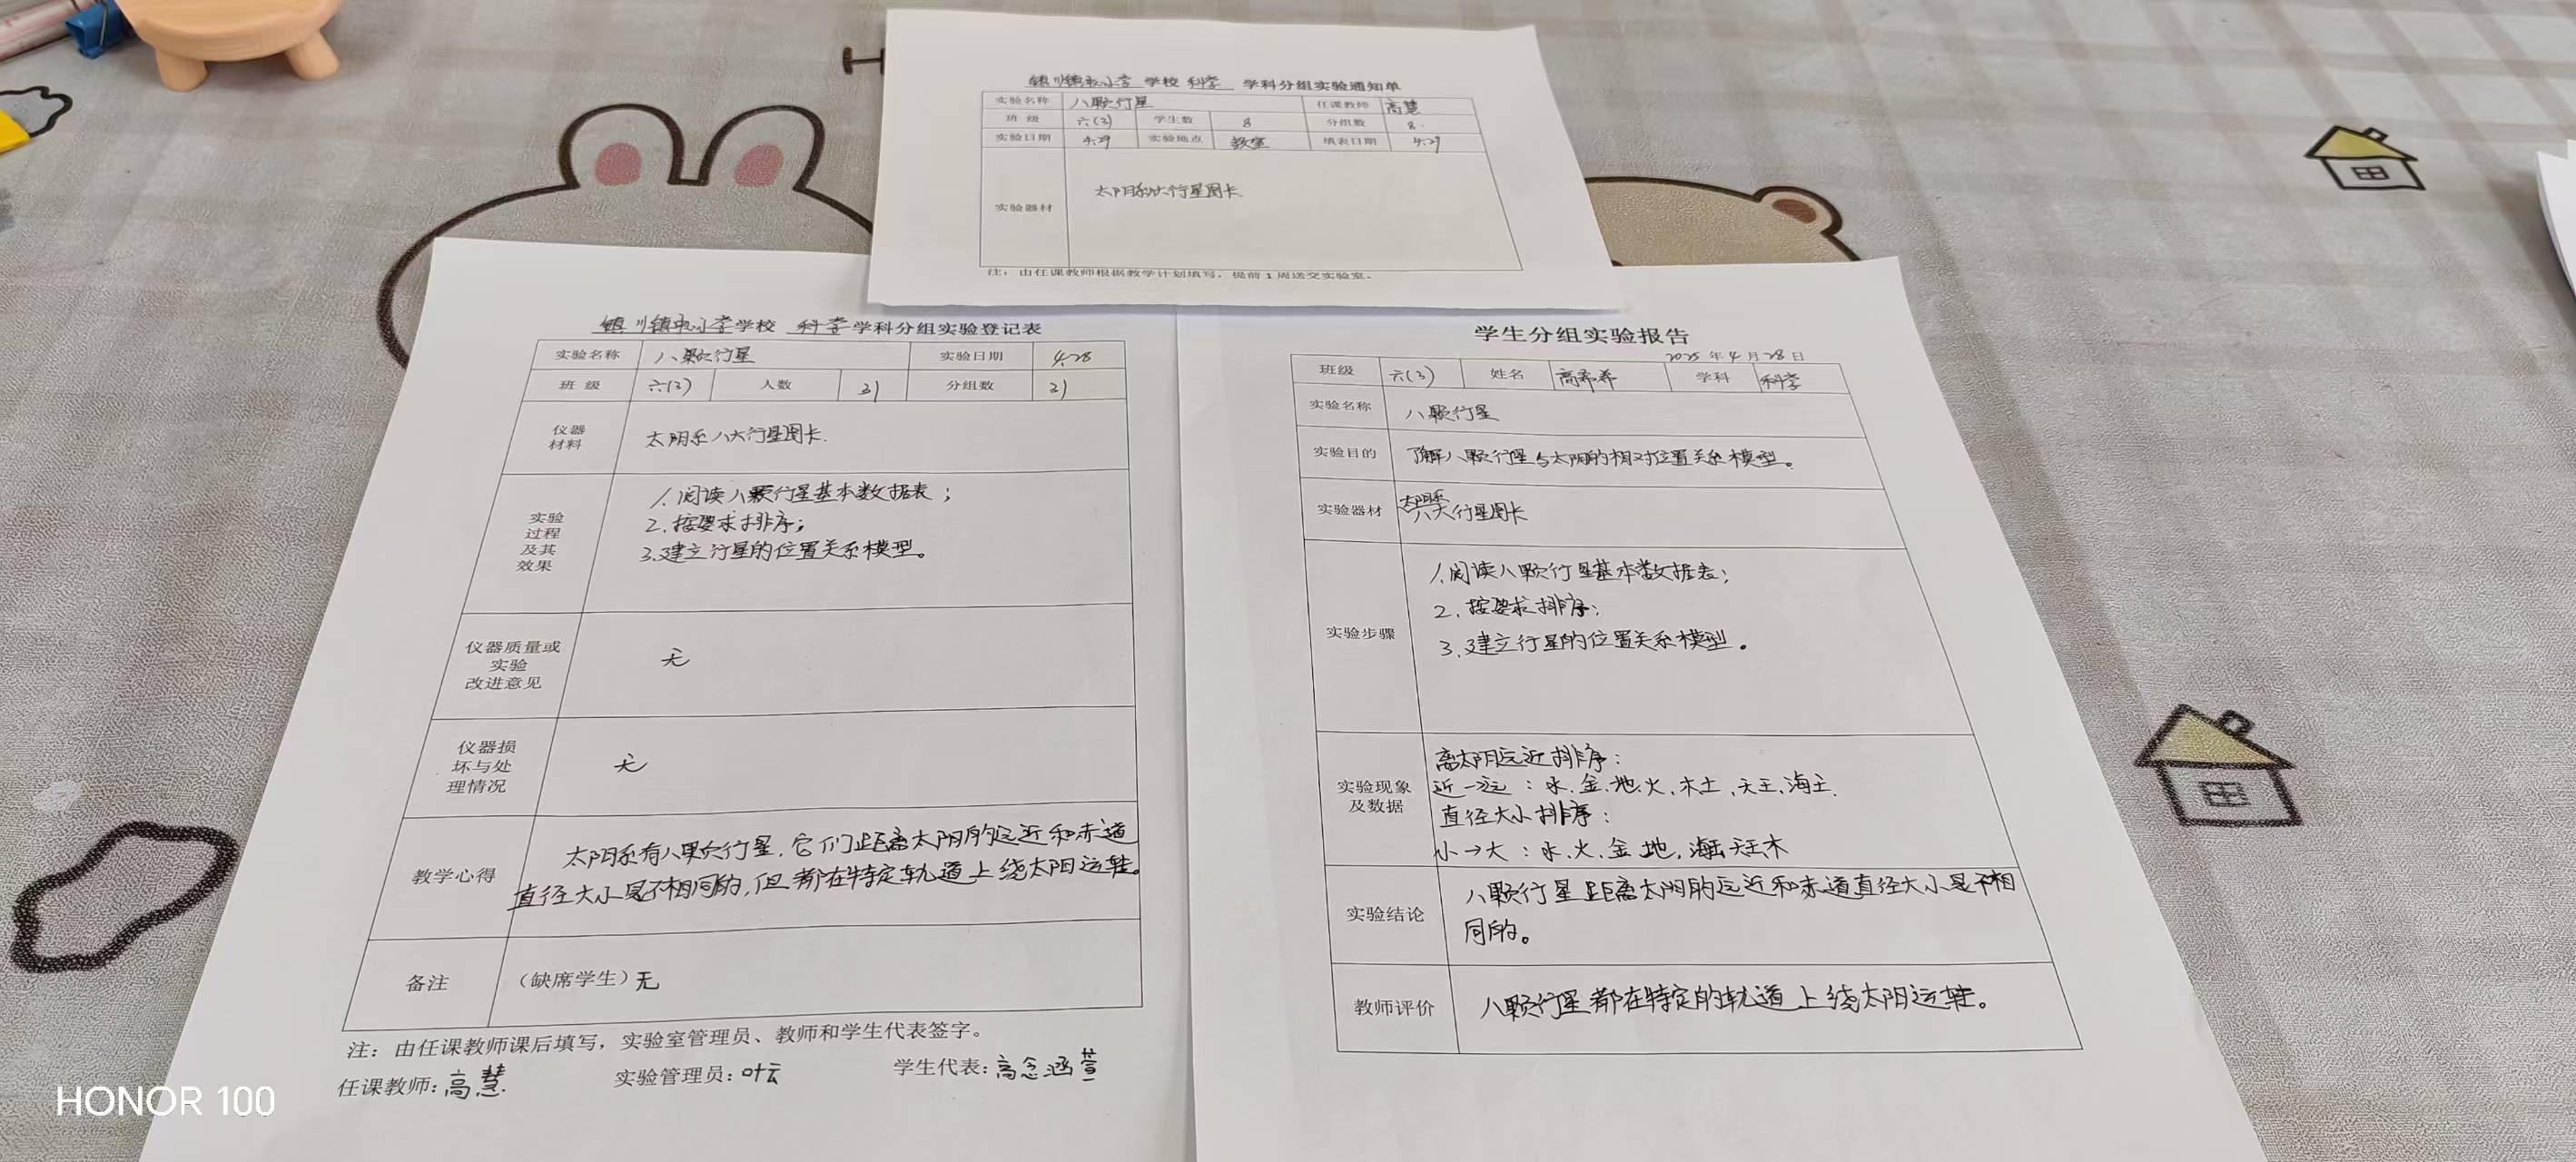 镇川镇政小学 学校 科学 学科分组实验通知单
实验名称 八颗行星 任课教师 高慧
班 级 六(3) 学生数 8 分组数 8
实验日期 4.29 实验地点 教室 填表日期 4.29
实验器材 太阳系八大行星图卡
注:由任课教师根据教学计划填写,提前1周送交实验室。
学校 科学 学科分组实验登记表
实验名称 八颗行星 实验日期 4.28
班 级 六(3) 人数 分组数
仪器
材料
太阳系八大行星图卡.
实验
过程
及其
效果
1.阅读八颗行星基本数据表;
2.按要求排序;
3.建立行星的位置关系模型。
仪器质量或
实验
改进意见
无
仪器损
坏与处
理情况
无
教学心得
太阳系有八颗行星,它们距离太阳的远近和赤道
直径大小是不相同的,但都在特定轨道上绕太阳运转。
备注 (缺席学生)无
注:由任课教师课后填写,实验室管理员、教师和学生代表签字。
任课教师:高慧 实验管理员:叶云 学生代表:高念涵萱
学生分组实验报告
2025年4月28日
班级 六(3) 姓名 高希希 学科 科学
实验名称 八颗行星
实验目的 了解八颗行星与太阳的相对位置关系模型。
实验器材 太阳系
八大行星图卡
实验步骤
1.阅读八颗行星基本数据表;
2.按要求排序;
3.建立行星的位置关系模型。
实验现象
及数据
离太阳远近排序:
近→远:水.金.地.火.木土.天王.海王.
直径大小排序:
小→大:水.火.金 地,海王 天王木
实验结论
八颗行星距离太阳的远近和赤道直径大小是不相
同的。
教师评价 八颗行星都在特定的轨道上绕太阳运转。
HONOR 100